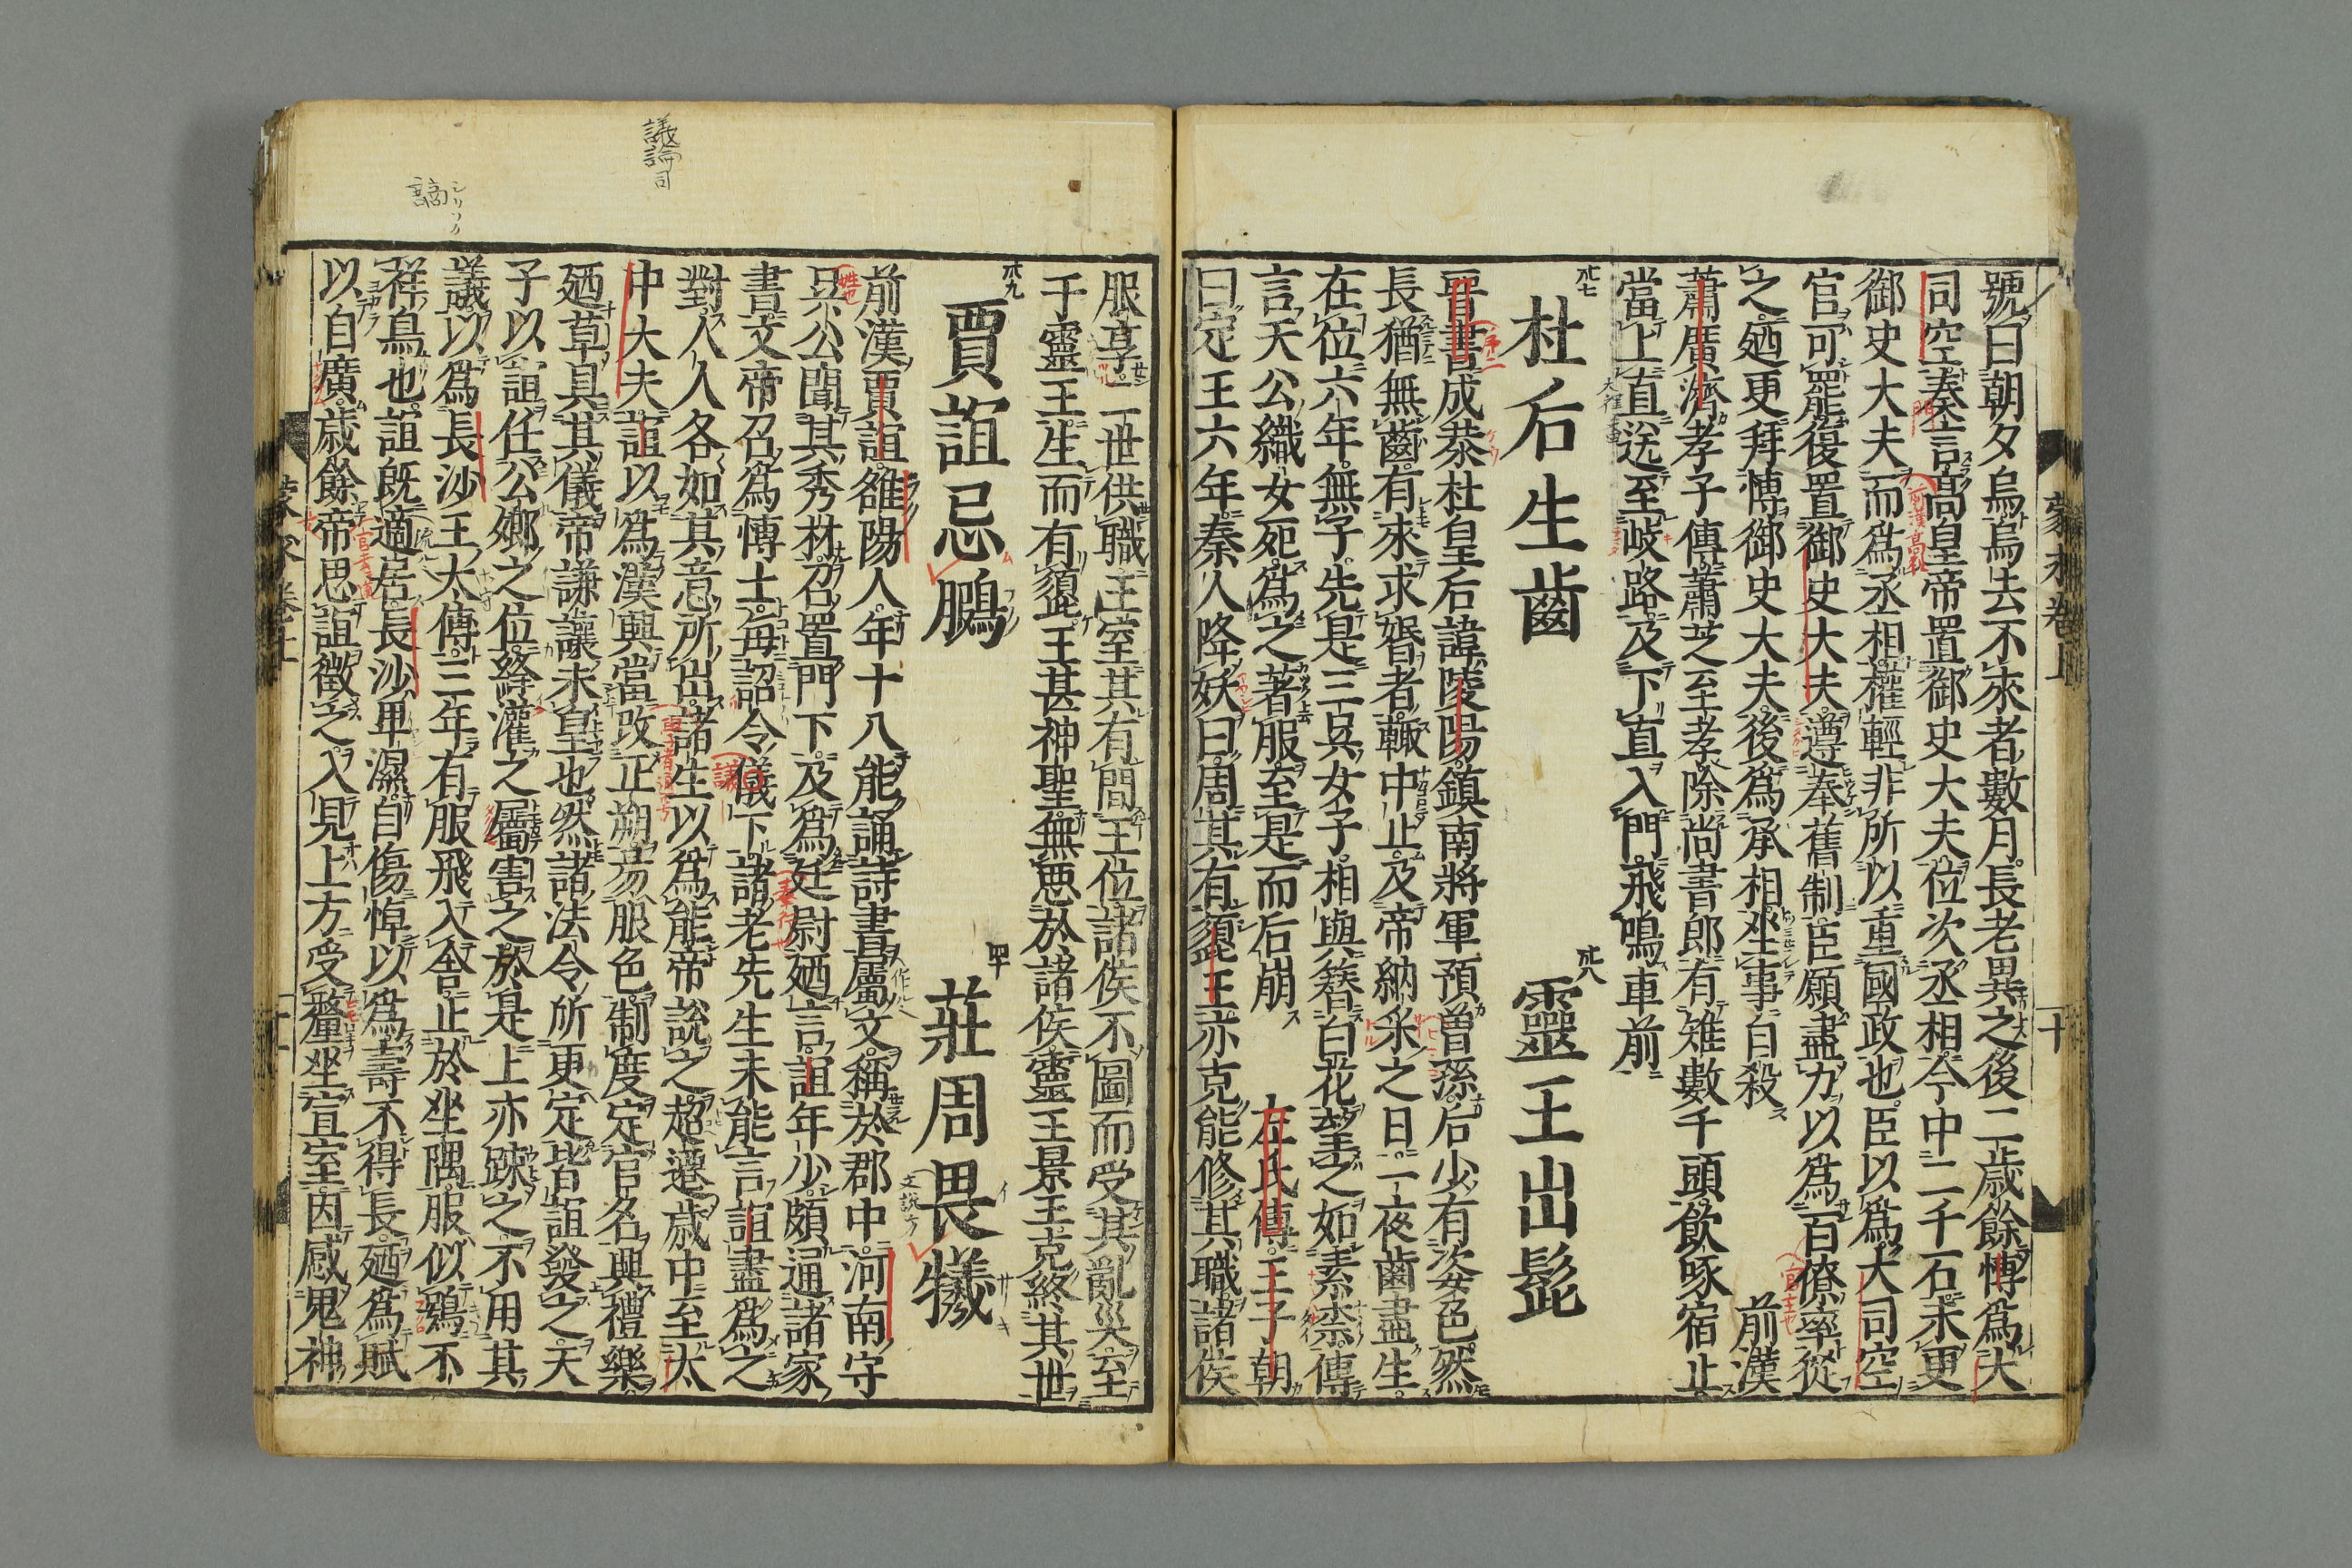 號曰朝夕烏烏去不來者數月長老異之後二歲餘愽爲大
司空奏言高皇帝置御史大夫位次丞相今中二千石未更
御史大夫而爲丞相權輕非所以重國政也臣以爲大司空
官可罷復置御史大夫遵奉舊制臣願盡力以爲百僚率從
之廼更拜愽御史大夫後爲承相坐事自殺 前漢
蕭廣濟孝子傳蕭芝至孝除尚書郎有雉數千頭飲啄宿止
當上直送至岐路及下直入門飛鳴車前
卅七 杜后生齒 卅八 靈王出髭
晋書成恭杜皇后諱陵陽鎮南將軍預曽孫后少有姿色然
長猶無齒有來求婚者輙中止及帝納采之日一夜齒盡生
在位六年無子先是三呉女子相與簪白花望之如素柰傳
言天公織女死爲之著服至是而后崩 左氏傳王子朝
曰定王六年秦人降妖曰周其有頿王亦克能修其職諸侯
服享二世供職王室其有間王位諸侯不圖而受其亂災至
于靈王生而有頿王甚神聖無悪於諸侯靈王景王克終其世
卅九 賈誼忌鵩 四十 莊周畏犧
前漢賈誼雒陽人年十八能誦詩書屬文稱於郡中河南守
呉公聞其秀材召置門下及爲廷尉廼言誼年少頗通諸家
書文帝召爲愽士毎詔令儀下諸老先生未能言誼盡爲之
對人人各如其意所出諸生以爲能帝說之超遷歲中至太
中大夫誼以爲漢興當改正朔易服色制度定官名興禮樂
廼草具其儀帝謙讓未皇也然諸法令所更定皆誼發之天
子以誼任公卿之位絳灌之屬害之於是上亦踈之不用其
議以爲長沙王太傳三年有服飛入舎止於坐隅服似鴞不
祥鳥也誼既適居長沙卑濕自傷悼以爲壽不得長廼爲賦
以自廣歲餘帝思誼徵之入見上方受釐坐宣室因感鬼神
蒙求卷上
十
議論司
謫
シリソク